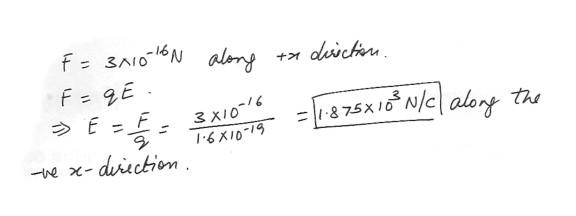 F = 3×10⁻¹⁶N along +x direction.
F = qE.
⇒ E = F/q = 3 ×10⁻¹⁶/1.6 ×10⁻¹⁹ = 1.875×10³ N/C along the
-ve x-direction.